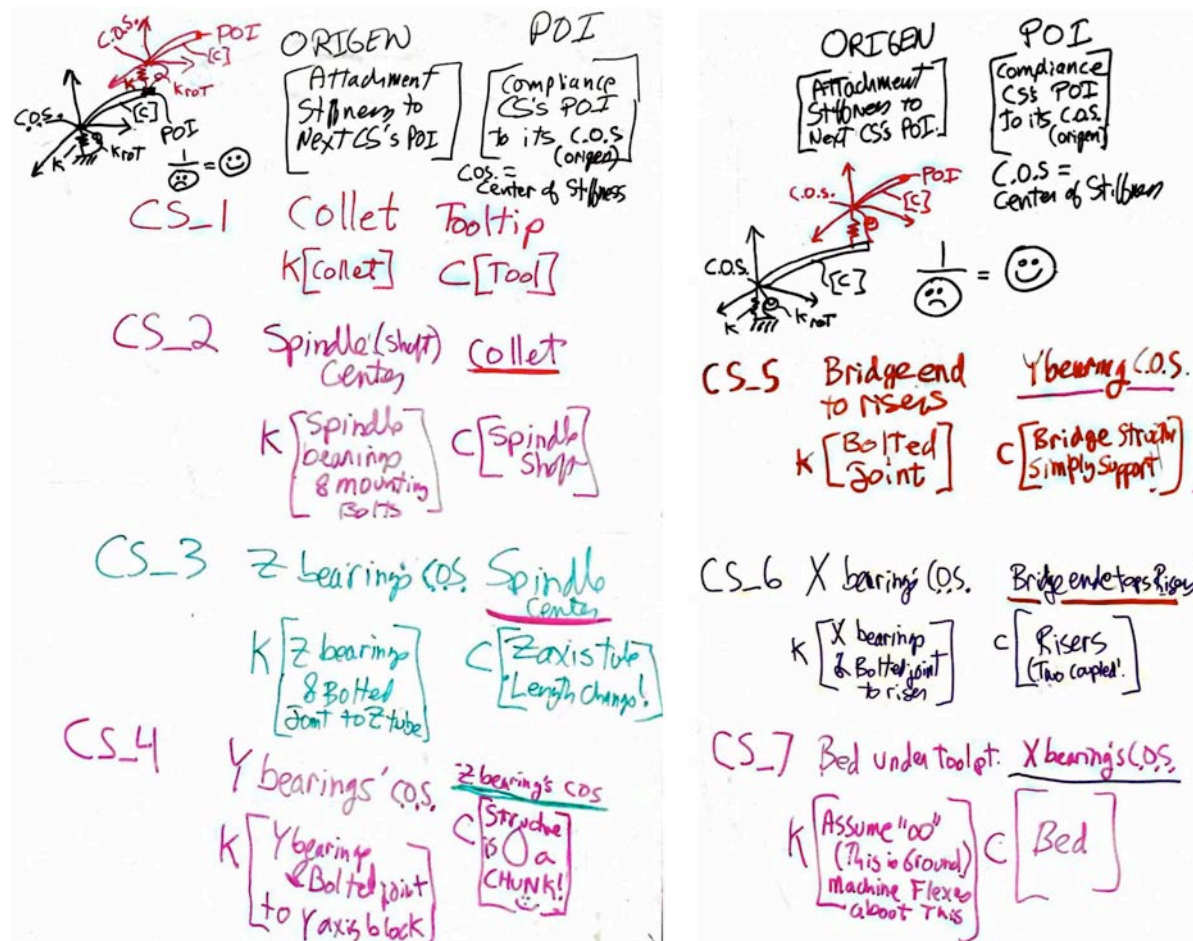 C.O.S.
POI
[C]
K
KROT
C.O.S.
[C]
POI
K
KROT
1
=
ORIGEN
POI
Attachment
Stiffness to
Next CS's POI
Compliance
CS's POI
to its C.O.S
(origen)
C.O.S. =
Center of Stiffness
CS_1 Collet Tooltip
K[Collet] C[Tool]
CS_2 Spindle (shaft) Collet
Center
K[Spindle
bearings
& mounting
Bolts]
C[Spindle
Shaft]
CS_3 Z bearing's C.O.S. Spindle
Center
K[Z bearings
& Bolted
Joint to Z tube]
C[Z axis tube
Length Change!]
CS_4 Y bearings' C.O.S. Z bearing's COS
K[Y bearings
& Bolted joint
to Y axis block]
C[Structure
is a
CHUNK!]
ORIGEN
POI
Attachment
Stiffness to
Next CS's POI.
Compliance
CS's POI
to its C.O.S.
(origen)
C.O.S =
Center of Stiffness
C.O.S.
POI
[C]
C.O.S.
[C]
K
KROT
1
=
CS_5 Bridge end Y bearing C.O.S.
to risers
K[Bolted
Joint]
C[Bridge Structure
Simply Support]
CS_6 X bearing's C.O.S. Bridge end tops Risers
K[X bearings
& Bolted joint
to riser]
C[Risers
(Two coupled!]
CS_7 Bed under toolpt. X bearing's C.O.S.
K[Assume "∞"
(This is Ground)
machine Flexes
about This]
C[Bed]